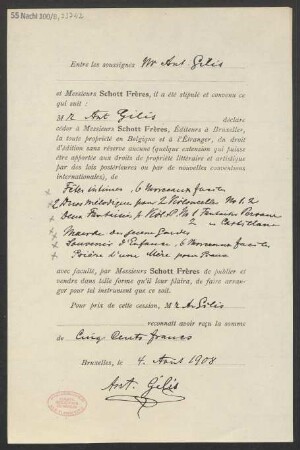 55 Nachl 100/B, 21742
Entre les soussignés Mr Ant. Gilis
et Messieurs Schott Frères, il a été stipulé et convenu ce
qui suit :
M r Ant Gilis déclare
céder à Messieurs Schott Frères, Éditeurs à Bruxelles,
la toute propriété en Belgique et à l'Étranger, du droit
d'édition sans réserve aucune (quelque extension qui puisse
être apportée aux droits de propriété littéraire et artistique
par des lois postérieures ou par de nouvelles conventions
internationales), de
Fêtes intimes, 6 Morceaux faciles
2 Duos mélodiques pour 2 Violoncelles No 1, 2
Deux Fantaisies No 1 Fantaisie
2 Castillane
Marche des jeunes Gardes
Souvenir d'Enfance, 6 Morceaux faciles
Prière d'une Mère pour
avec faculté, par Messieurs Schott Frères de publier et
vendre dans telle forme qu'il leur plaira, de faire arran-
ger pour tel instrument que ce soit.
Pour prix de cette cession, M r A. Gilis
reconnaît avoir reçu la somme
de Cinq Cents francs
Bruxelles, le 4 Août 1908
Ant. Gilis